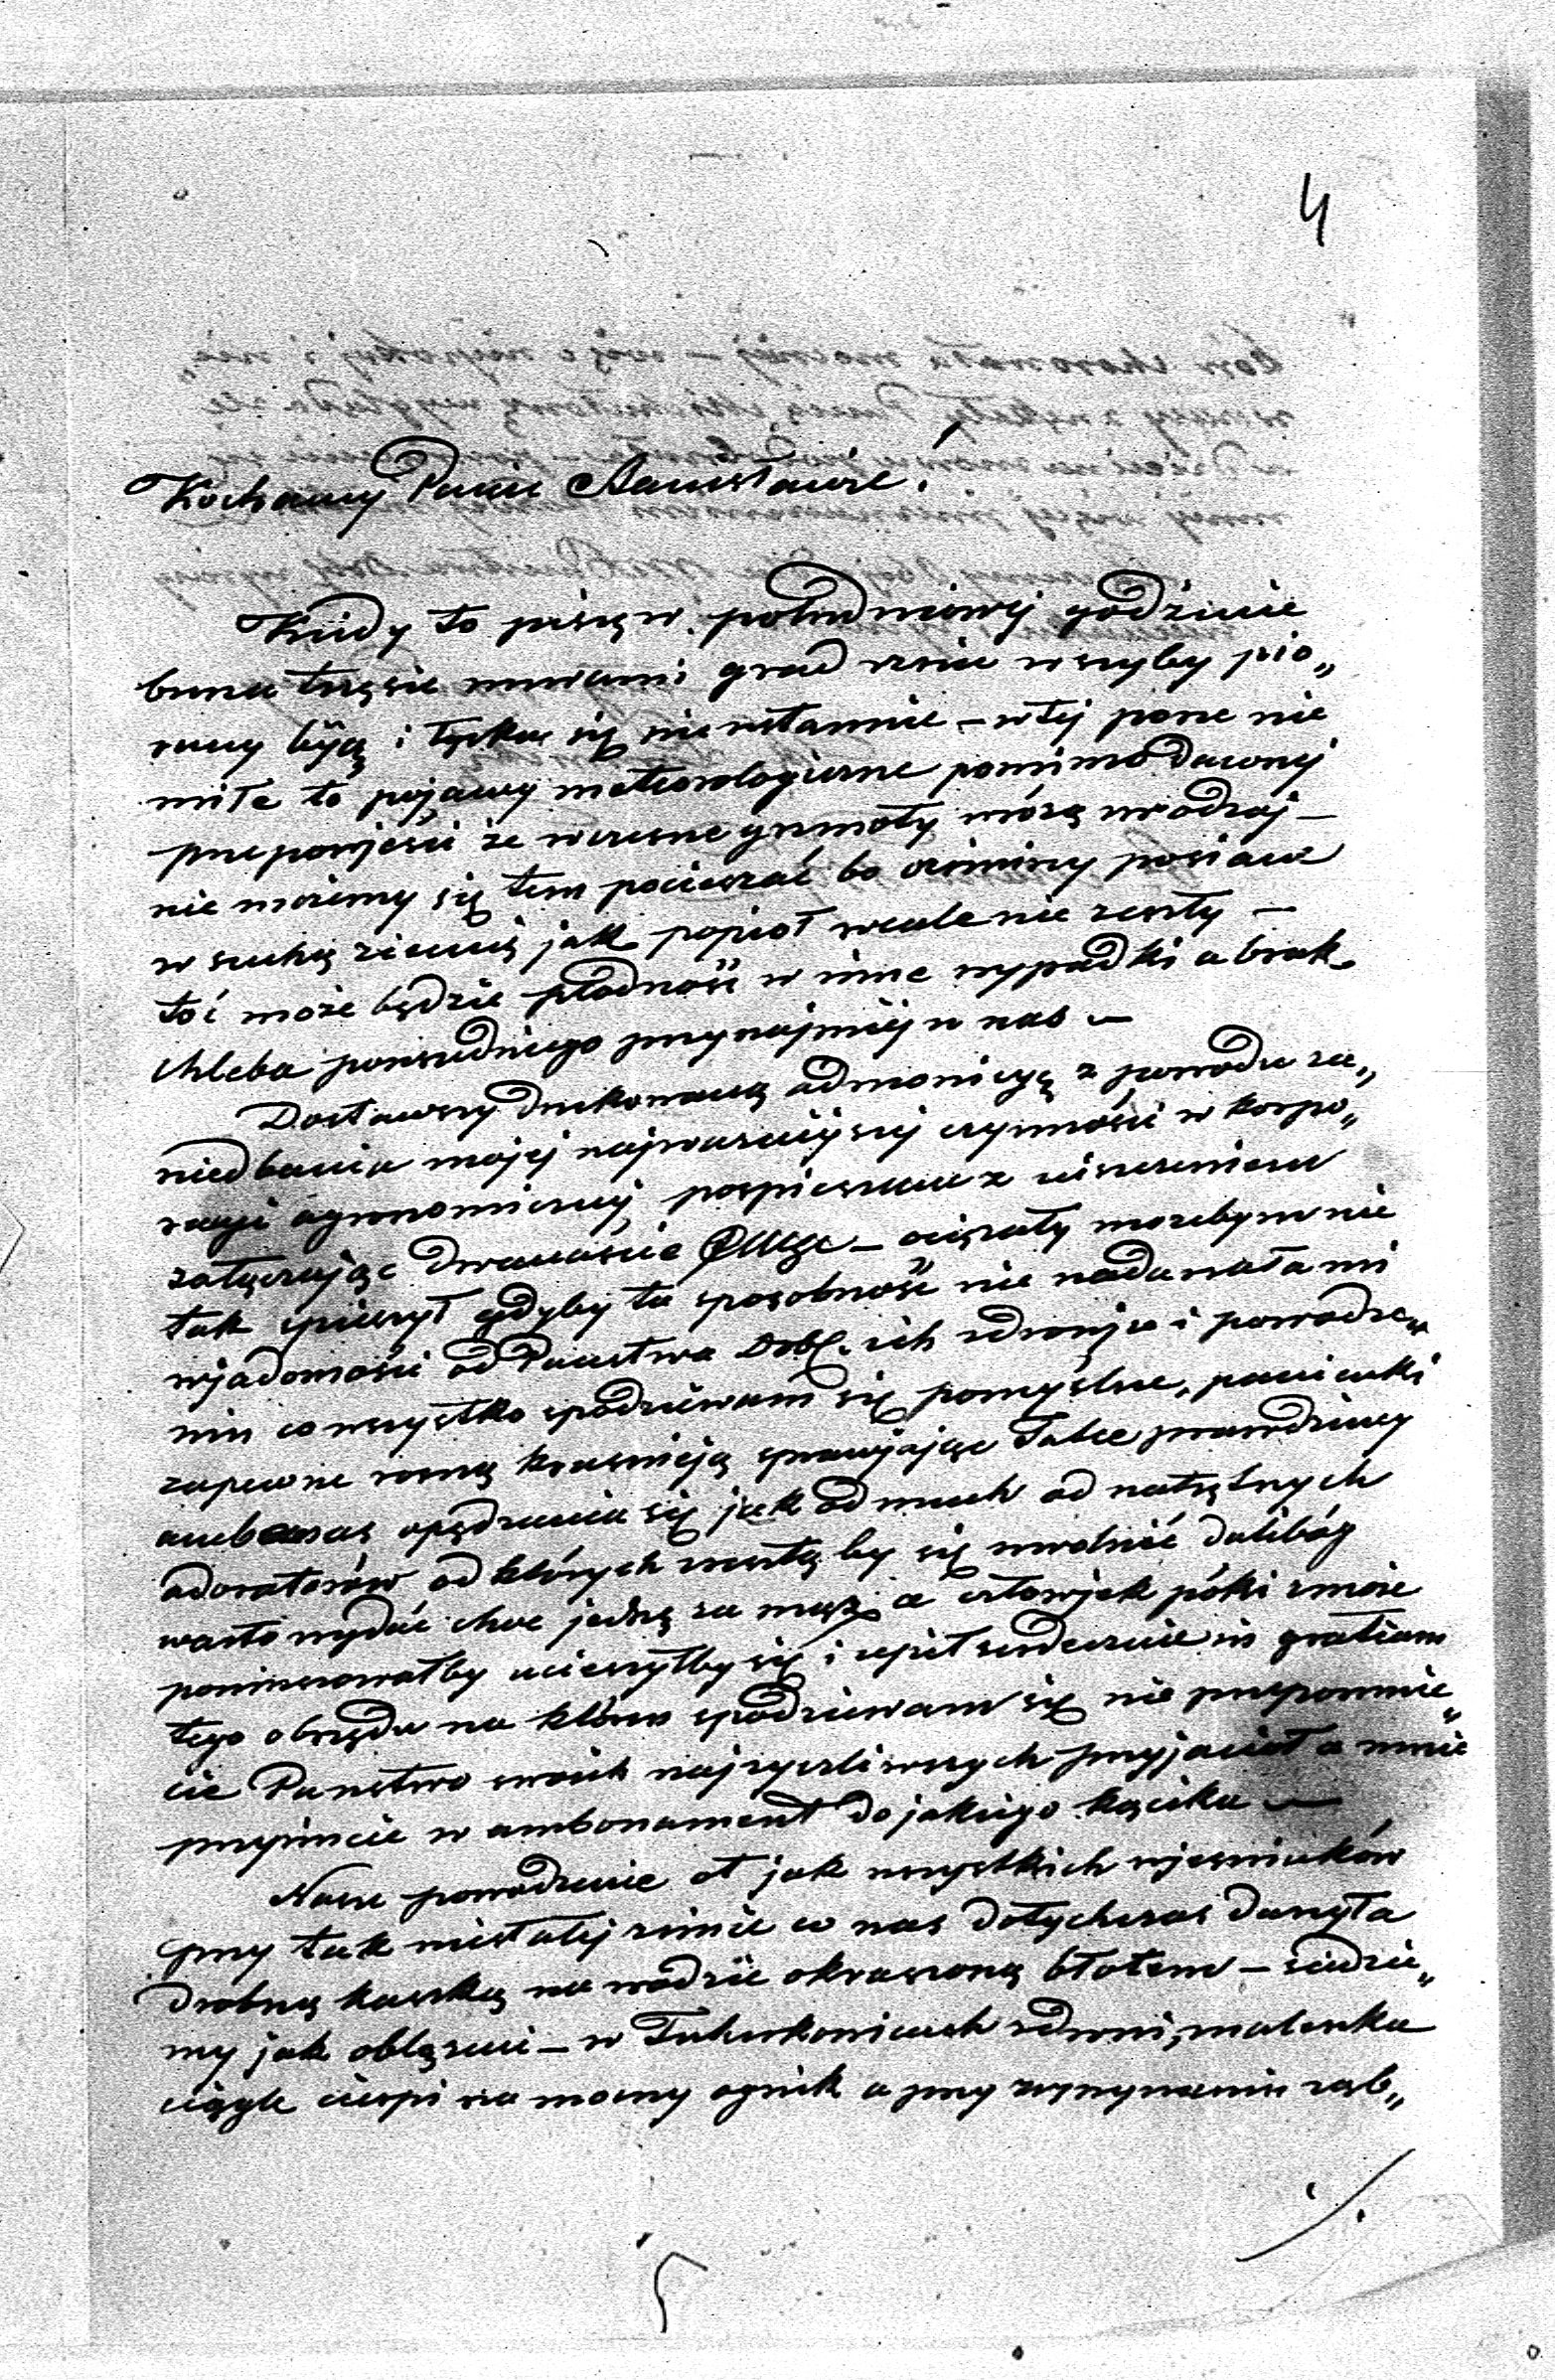 4
Kochany Panie Stanisławie!
Kiedy to piszę w południowej godzinie
burza trzęsie murami grad rznie w szyby pio„
runy biją i łyska się nieustannie – w tej porze nie
miłe to pojawy meteorologiczne pomimo dawnej
przepowjeści że wczesne grzmoty wróżą urodzaj –
nie możemy się tem pocieszać bo oziminy posiane
w suchą ziemię jak popioł wcale nie zeszły –
toć może będzie płodność w inne wypadki a brak
chleba powszedniego przynajmniej u nas –
Dostawszy drukowaną admonicyę z powodu za„
niedbania mojej najważniejszej czynności w korpo„
racyi agronomicznej pospieszam z uiszczeniem
załączając dwanaście – ociężały możebym nie
tak spieszył gdyby ta sposobność nie nadawała mi
wjadomości od Państwa Dobr. ich zdrowju i powodze„
niu co wszystko spodziewam się pomyślne, panienki
zapewne rosną kraśnieją sprawjając Tatce prawdziwy
ambaras opędzania się jak od much od natrętnych
adoratorów od których zresztą by się uwolnić dalibóg
warto wydać choc jedną za mąż a człowjek póki zmoże
powinszowałby ucieszyłby się i upił serdecznie in gratiam
tego obrzędu na którem spodziewam się nie przepomnie„
cie Państwo swoich najżyczliwszych przyjaciół a mnie
przyjmcie w ambonament do jakiego kącika –
Nasze powodzenie ot jak wszystkich wjesniaków
przy tak niestałej zimie co nas dotychczas darzyła
drobną kaszką na wodzie okraszoną błotem – siedzie„
my jak oblężeni – w zdrowi, maleńka
ciągle cierpi na mocny ognik a przy wyrzynaniu ząb„